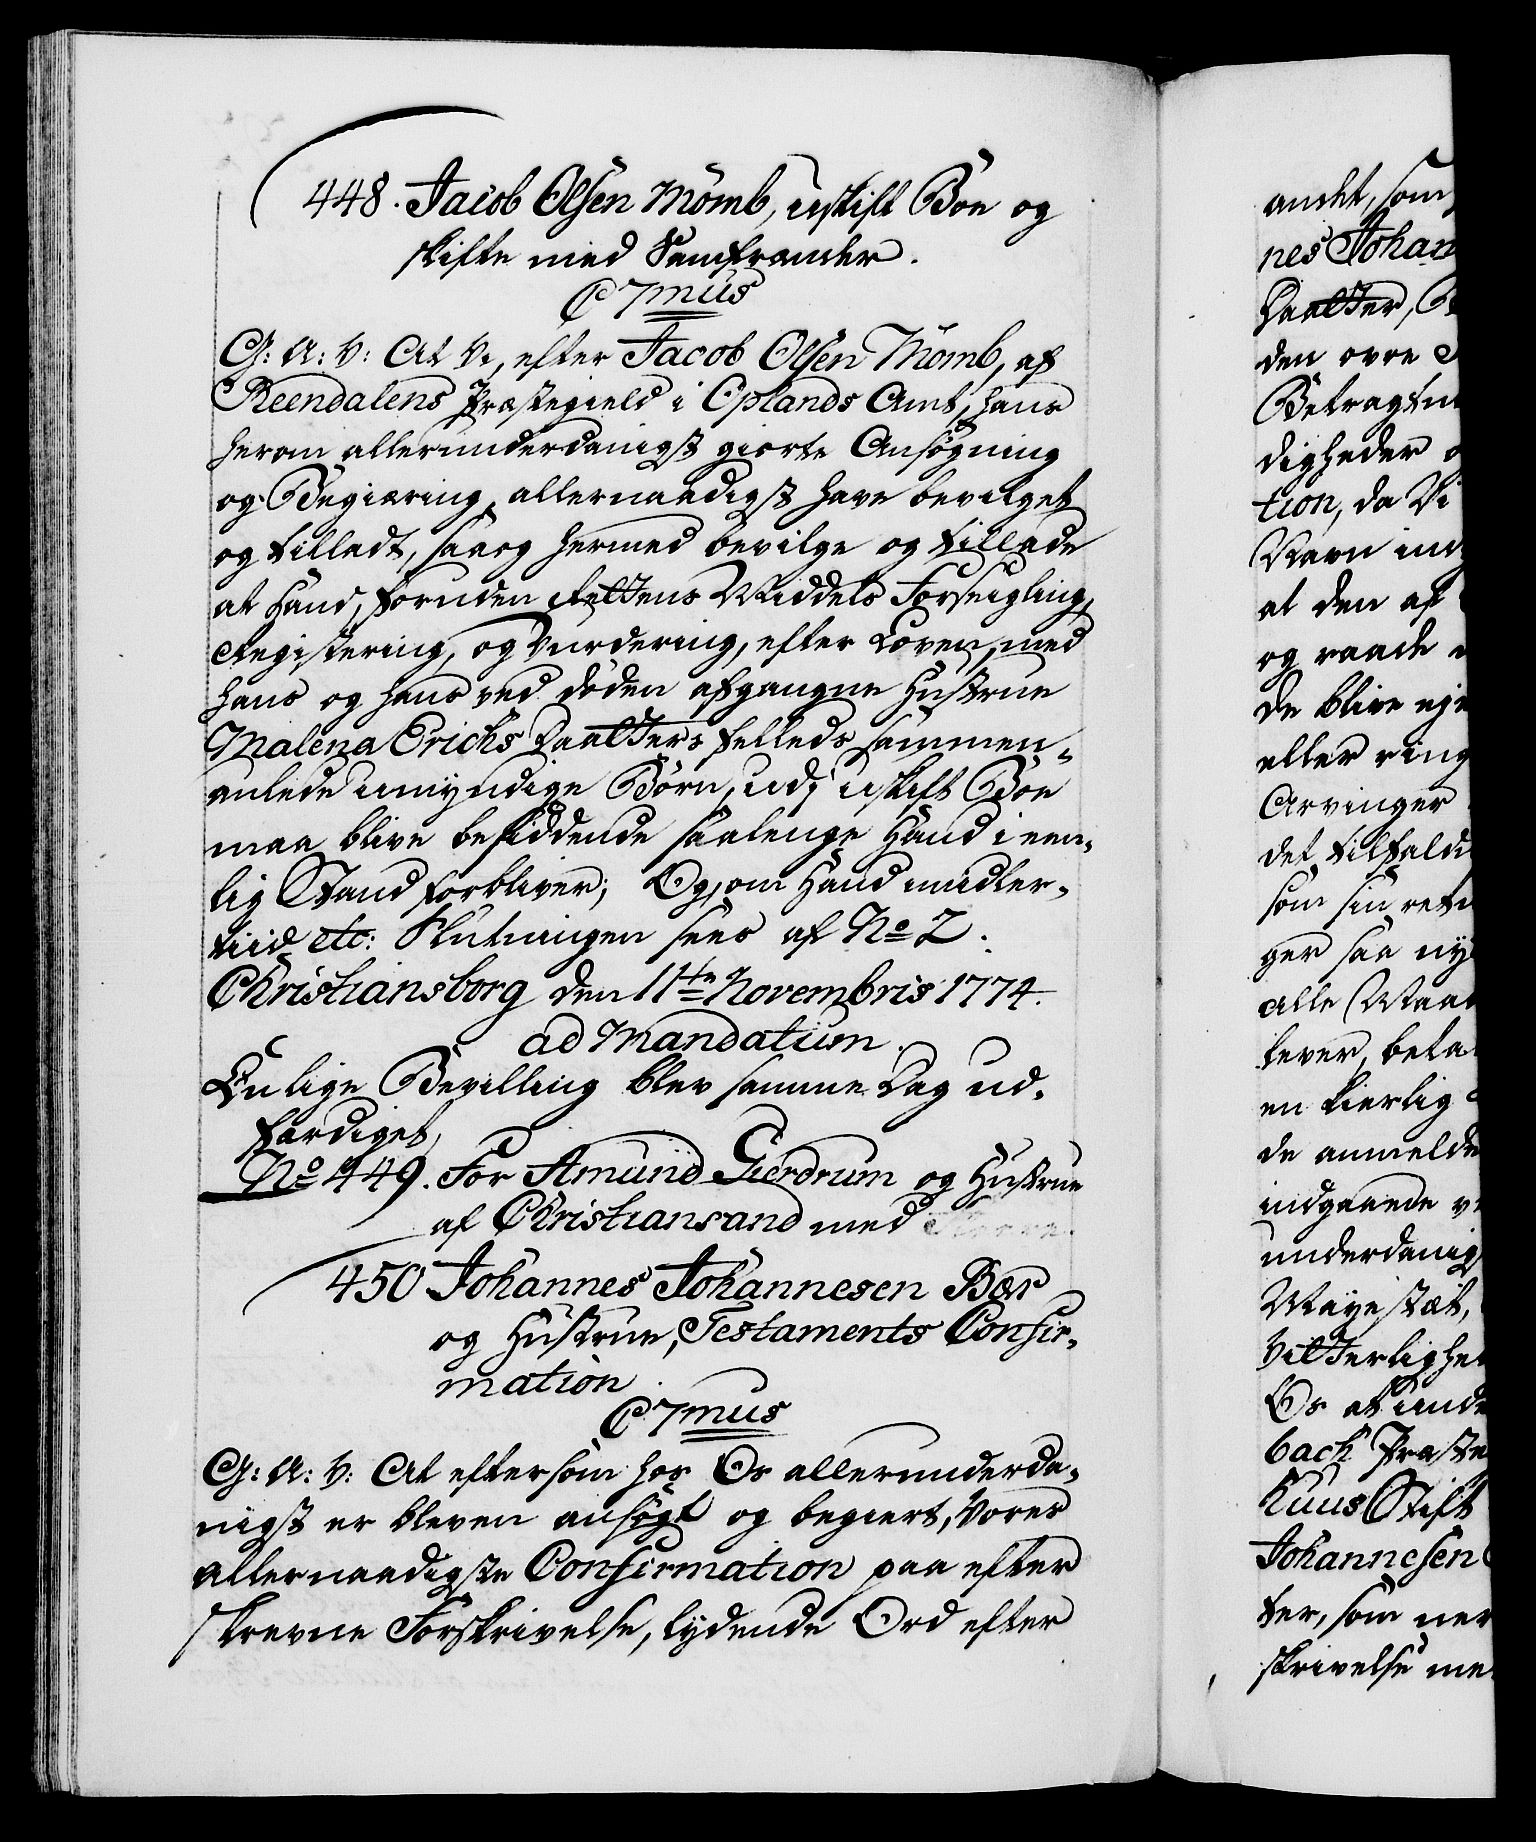 448. Jacob Olsen Momb, uskift Boe og
skifte med Samfrænder.
C 7mus
G: A: V: At Vi, efter Jacob Olsen Momb, af
Reendalens Præstegield i Oplands Amt, hans
herom allerunderdanigst giorte Ansøgning
og Begiæring, allernaadigst have bevilget
og tilladt, saa og hermed bevilge og tillade
at Hand, foruden Rettens Middels Forseigling,
Registering, og Vurdering, efter Loven, med
hans og hans ved døden afgangne Hustrue
Malena Erichs Daatters fælleds sammen-
avlede umyndige Børn, udj uskift Boe
maa blive besiddende saalenge Hand i een-
lig Stand forbliver; Og, om Hand midler-
tiid etc: Slutningen sees af No 2.
Christiansborg den 11te Novembris 1774.
ad Mandatum.
En lige Bevilling blev samme Dag ud-
færdiget,
No 449. For Amund Gierdrum og Hustrue
af Christiansand med
450 Johannes Johannesen Bær
og Hustrue, Testaments Confir-
mation.
C 7mus
G: A: V: At eftersom hos Os allerunderda-
nigst er bleven ansøgt og begiert, Vores
allernaadigste Confirmation paa efter
skrevne Forskrivelse, lydende Ord efter
andet, som
nes Johan
Daatter,
den ovre
Betragtni
digheder
tion, da Vi
Navn ind
at den af
og raade
de blive
eller ring
Arvinger
det tilfald
som sin
ger saa ny
alle Maa
lever, beta
en kierlig
de anmelde
indgaaende
underdanig
Mayestæt,
Vitterlighe
Os at
bach Præste
huus Stift
Johannesen
ter, som ner
skrivelse me